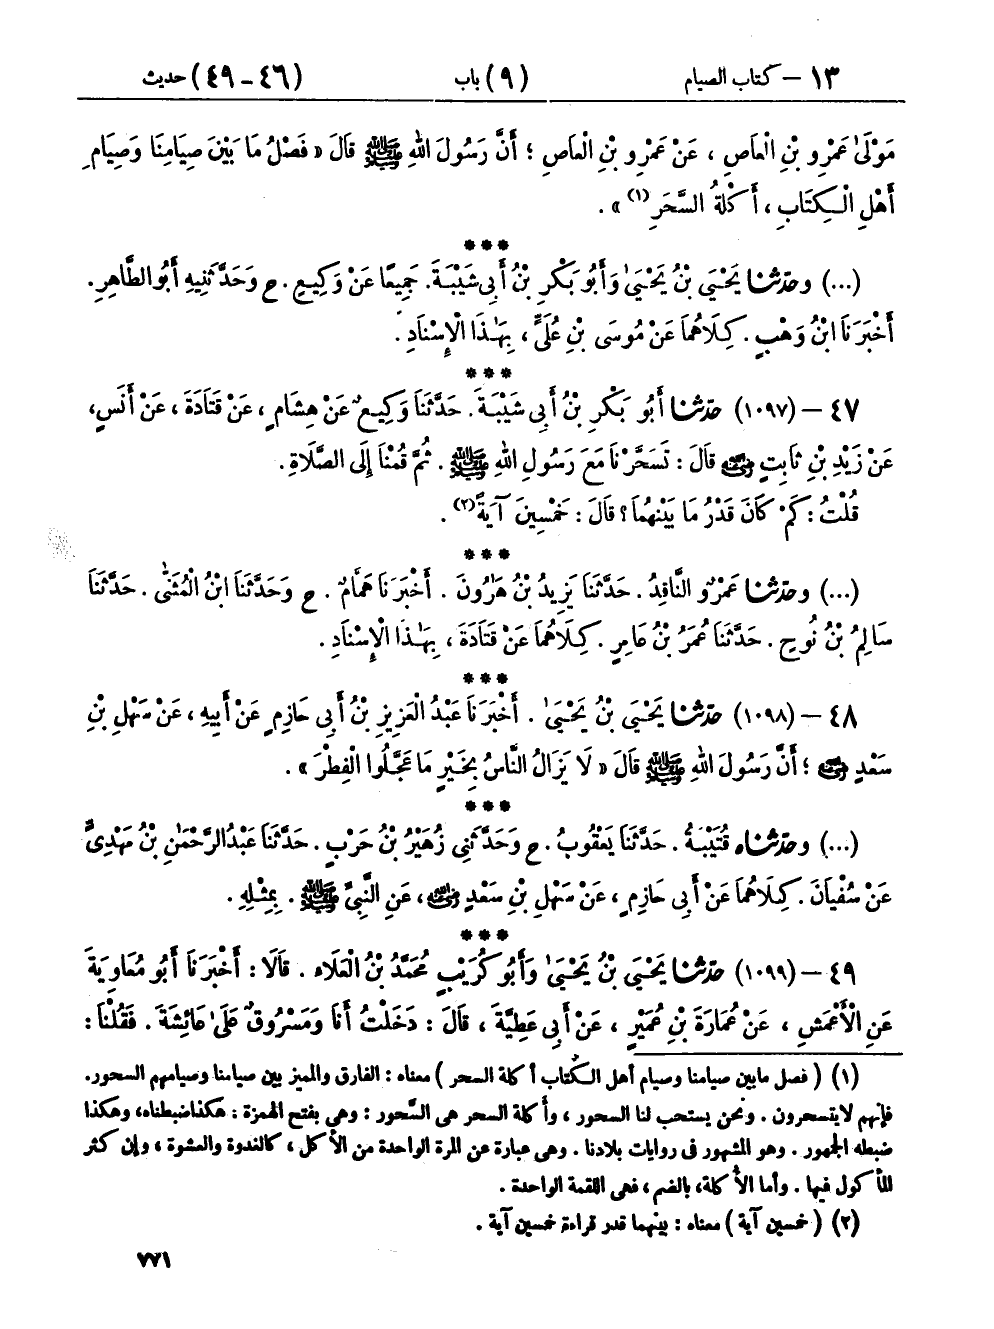 ١٣ – كتاب الصيام (٩) باب (٤٦ – ٤٩) حديث
مَوْلَىٰ عَمْرِو بْنِ الْعَاصِ ، عَنْ عَمْرِو بْنِ الْعَاصِ ؛ أَنَّ رَسُولَ اللهِ ﷺ قَالَ « فَصْلُ مَا بَيْنَ صِيَامِنَا وَصِيَامِ
أَهْلِ الْكِتَابِ ، أَكْلَةُ السَّحَرِ (١) » .
***
(...) وحدّثنا يَحْيَى بْنُ يَحْيَىٰ وَأَبُو بَكْرِ بْنُ أَبِي شَيْبَةَ. جَمِيعًا عَنْ وَكِيعٍ . ح وَحَدَّثَنِيهِ أَبُو الطَّاهِرِ.
أَخْبَرَنَا ابْنُ وَهْبٍ . كِلَاهُمَا عَنْ مُوسَى بْنِ عُلَيٍّ ، بِهَٰذَا الْإِسْنَادِ .
***
٤٧ – (١٠٩٧) حدّثنا أَبُو بَكْرِ بْنُ أَبِي شَيْبَةَ . حَدَّثَنَا وَكِيعٌ عَنْ هِشَامٍ ، عَنْ قَتَادَةَ ، عَنْ أَنَسٍ،
عَنْ زَيْدِ بْنِ ثَابِتٍ رضي الله عنه قَالَ : تَسَحَّرْنَا مَعَ رَسُولِ اللهِ ﷺ . ثُمَّ قُمْنَا إِلَى الصَّلَاةِ .
قُلْتُ : كَمْ كَانَ قَدْرُ مَا بَيْنَهُمَا ؟ قَالَ : خَمْسِينَ آيَةً (٢) .
***
(...) وحدّثنا عَمْرٌو النَّاقِدُ . حَدَّثَنَا يَزِيدُ بْنُ هَٰرُونَ . أَخْبَرَنَا هَمَّامٌ . ح وَحَدَّثَنَا ابْنُ الْمُثَنَّىٰ . حَدَّثَنَا
سَالِمُ بْنُ نُوحٍ . حَدَّثَنَا عُمَرُ بْنُ عَامِرٍ . كِلَاهُمَا عَنْ قَتَادَةَ ، بِهَٰذَا الْإِسْنَادِ .
***
٤٨ – (١٠٩٨) حدّثنا يَحْيَى بْنُ يَحْيَىٰ . أَخْبَرَنَا عَبْدُ الْعَزِيزِ بْنُ أَبِي حَازِمٍ عَنْ أَبِيهِ ، عَنْ سَهْلِ بْنِ
سَعْدٍ رضي الله عنه ؛ أَنَّ رَسُولَ اللهِ ﷺ قَالَ « لَا يَزَالُ النَّاسُ بِخَيْرٍ مَا عَجَّلُوا الْفِطْرَ » .
***
(...) وحدّثناه قُتَيْبَةُ . حَدَّثَنَا يَعْقُوبُ . ح وَحَدَّثَنِي زُهَيْرُ بْنُ حَرْبٍ . حَدَّثَنَا عَبْدُ الرَّحْمَٰنِ بْنُ مَهْدِيٍّ
عَنْ سُفْيَانَ . كِلَاهُمَا عَنْ أَبِي حَازِمٍ ، عَنْ سَهْلِ بْنِ سَعْدٍ رضي الله عنه ، عَنِ النَّبِيِّ ﷺ . بِمِثْلِهِ .
***
٤٩ – (١٠٩٩) حدّثنا يَحْيَى بْنُ يَحْيَىٰ وَأَبُو كُرَيْبٍ مُحَمَّدُ بْنُ الْعَلَاءِ . قَالَا : أَخْبَرَنَا أَبُو مُعَاوِيَةَ
عَنِ الْأَعْمَشِ ، عَنْ عُمَارَةَ بْنِ عُمَيْرٍ ، عَنْ أَبِي عَطِيَّةَ ، قَالَ : دَخَلْتُ أَنَا وَمَسْرُوقٌ عَلَىٰ عَائِشَةَ . فَقُلْنَا :
(١) ( فصل مابين صيامنا وصيام أهل الكتاب أكلة السحر ) معناه : الفارق والمميز بين صيامنا وصيامهم السحور.
فإنهم لايتسحرون . ونحن يستحب لنا السحور ، وأكلة السحر هى السَّحور : وهى بفتح الهمزة : هكذاضبطناه، وهكذا
ضبطه الجمهور . وهو المشهور فى روايات بلادنا . وهى عبارة عن المرة الواحدة من الأكل ، كالغدوة والعشوة ، وإن كثر
المأكول فيها . وأما الأُكلة، بالضم ، فهى اللقمة الواحدة .
(٢) ( خمسين آية ) معناه : بينهما قدر قراءة خمسين آية .
٧٧١